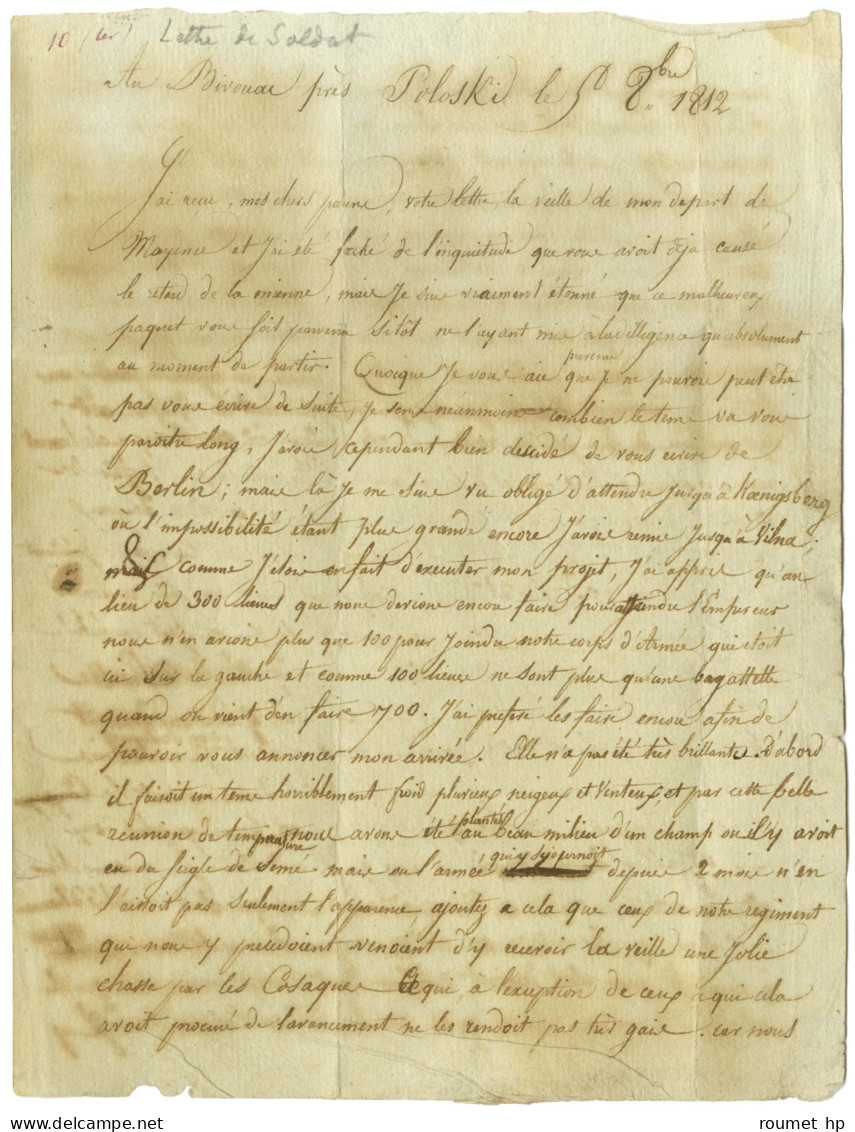 10 (ter) Lettre de Soldat
Au Bivouac près Poloski le 5 8bre 1812
J'ai recue, mes chers parens, votre lettre, la veille de mon depart de
Mayence et J'ai été faché de l'inquietude que vous avoit déja causé
le retard de la mienne, mais Je suis vraiment étonné que ce malheureux
paquet vous soit parvenu sitôt ne l'ayant mis à la dilligence qu'absolument
au moment de partir. Quoique Je vous aie prevenu que Je ne pourois peut être
pas vous écrire de suite, Je sens neanmoins combien le tems va vous
paroitre long, J'avois cependant bien decidé de vous écrire de
Berlin; mais là Je me suis vu obligé d'attendre Jusqu'à Kœnigsberg
où l'impossibilité étant plus grande encore J'avois remis Jusqu'à Vilna;
& comme J'étois en fait d'executer mon projet, J'ai appris qu'au
lieu de 300 lieues que nous devions encore faire pour attendre l'Empereur
nous n'en avions plus que 100 pour Joindre notre corps d'Armée qui étoit
ici sur la gauche et comme 100 lieues ne sont plus qu'une bagattelle
quand on vient d'en faire 700. J'ai preferé les faire encore afin de
pouvoir vous annoncer mon arrivée. Elle n'a pas été très brillante. D'abord
il faisoit un tems horriblement froid pluvieux neigeux et venteux et par cette belle
reunion de temperature nous avons été plantés au beau milieu d'un champ ou il y avoit
eu du seigle de semé mais ou l'armée qui y sejournoit depuis 2 mois n'en
laissoit pas seulement l'apparence ajoutez a cela que ceux de notre regiment
qui nous y precedoient venoient d'y recevoir la veille une Jolie
chasse par les Cosaques Ce qui, à l'exception de ceux a qui cela
avoit procuré de l'avancement ne les rendoit pas très gais. car nous
www.delcampe.net
roumet hp